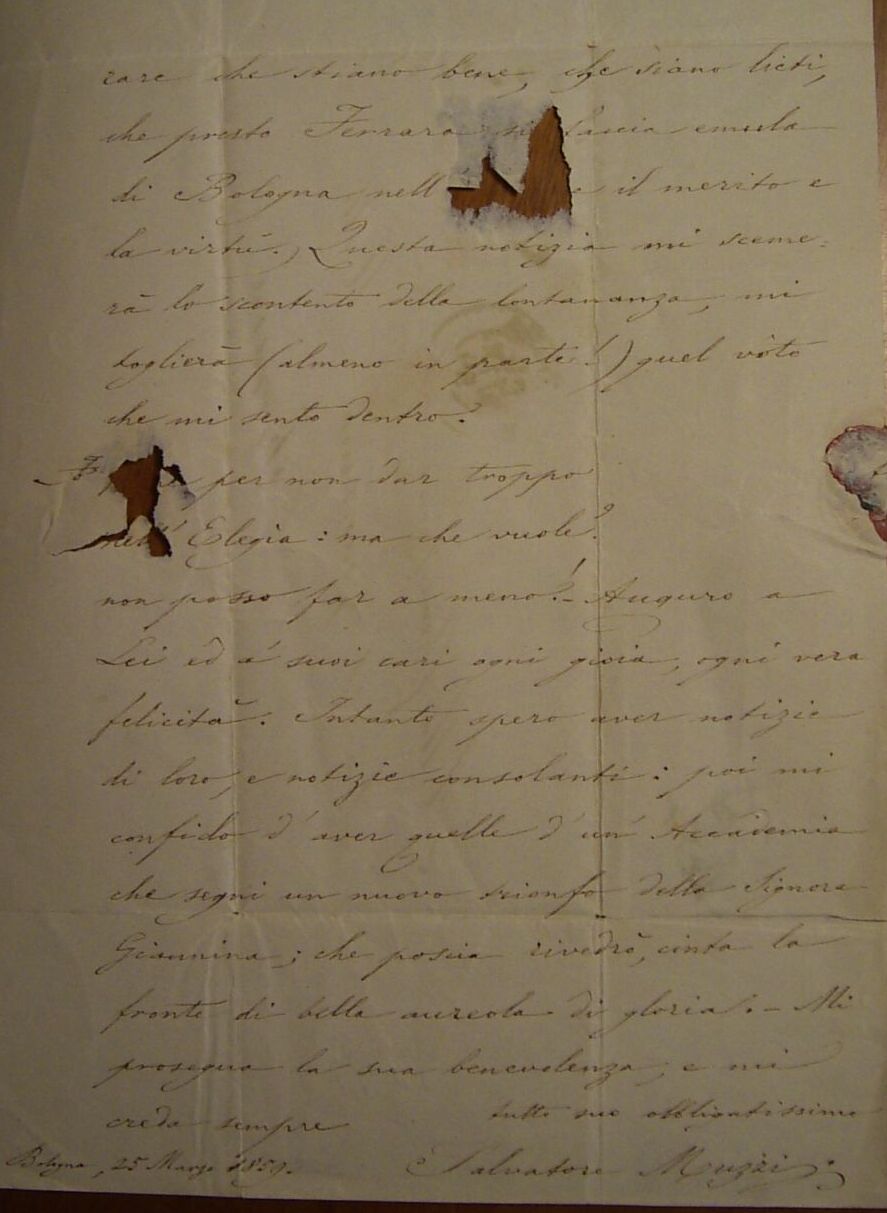 rare che stiano bene, che siano lieti,
che presto Ferrara si faccia emula
di Bologna nell e il merito e
la virtù. Questa notizia mi sceme=
rà lo scontento della lontananza, mi
toglierà (almeno in parte!) quel vòto
che mi sento dentro?
per non dar troppo
nell' Elegia: ma che vuole?
non posso far a meno! - Auguro a
Lei ed a' suoi cari ogni gioia, ogni vera
felicità. Intanto spero aver notizie
di loro, e notizie consolanti: poi mi
confido d'aver quelle d'un' Accademia
che segni un nuovo trionfo della Signora
Giannina; che poscia rivedrò, cinta la
fronte di bella aureola di gloria. - Mi
prosegua la sua benevolenza, e mi
creda sempre
tutto suo obbligatissimo
Bologna, 25 Marzo 1859.
Salvatore Muzzi